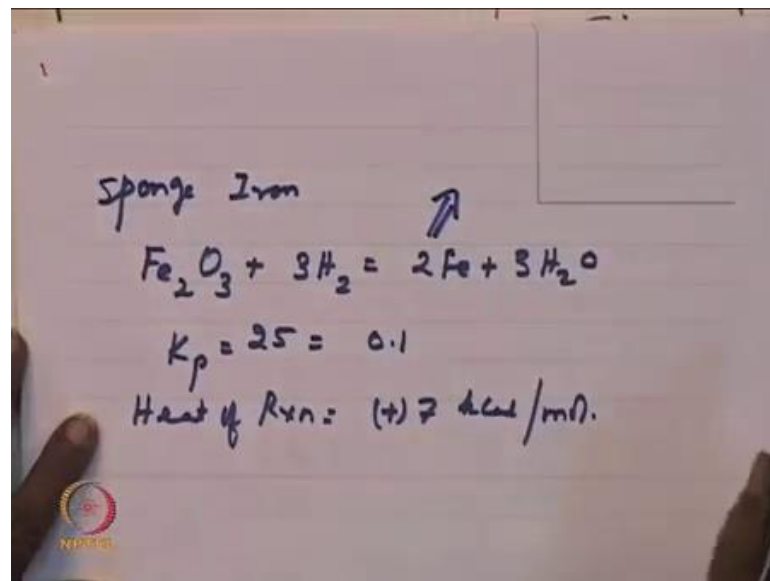 Sponge Iron
Fe2O3 + 3H2 = 2Fe + 3H2O
Kp = 25 = 0.1
Heat of Rxn = (+) 7 kcal/mol.
NPTEL